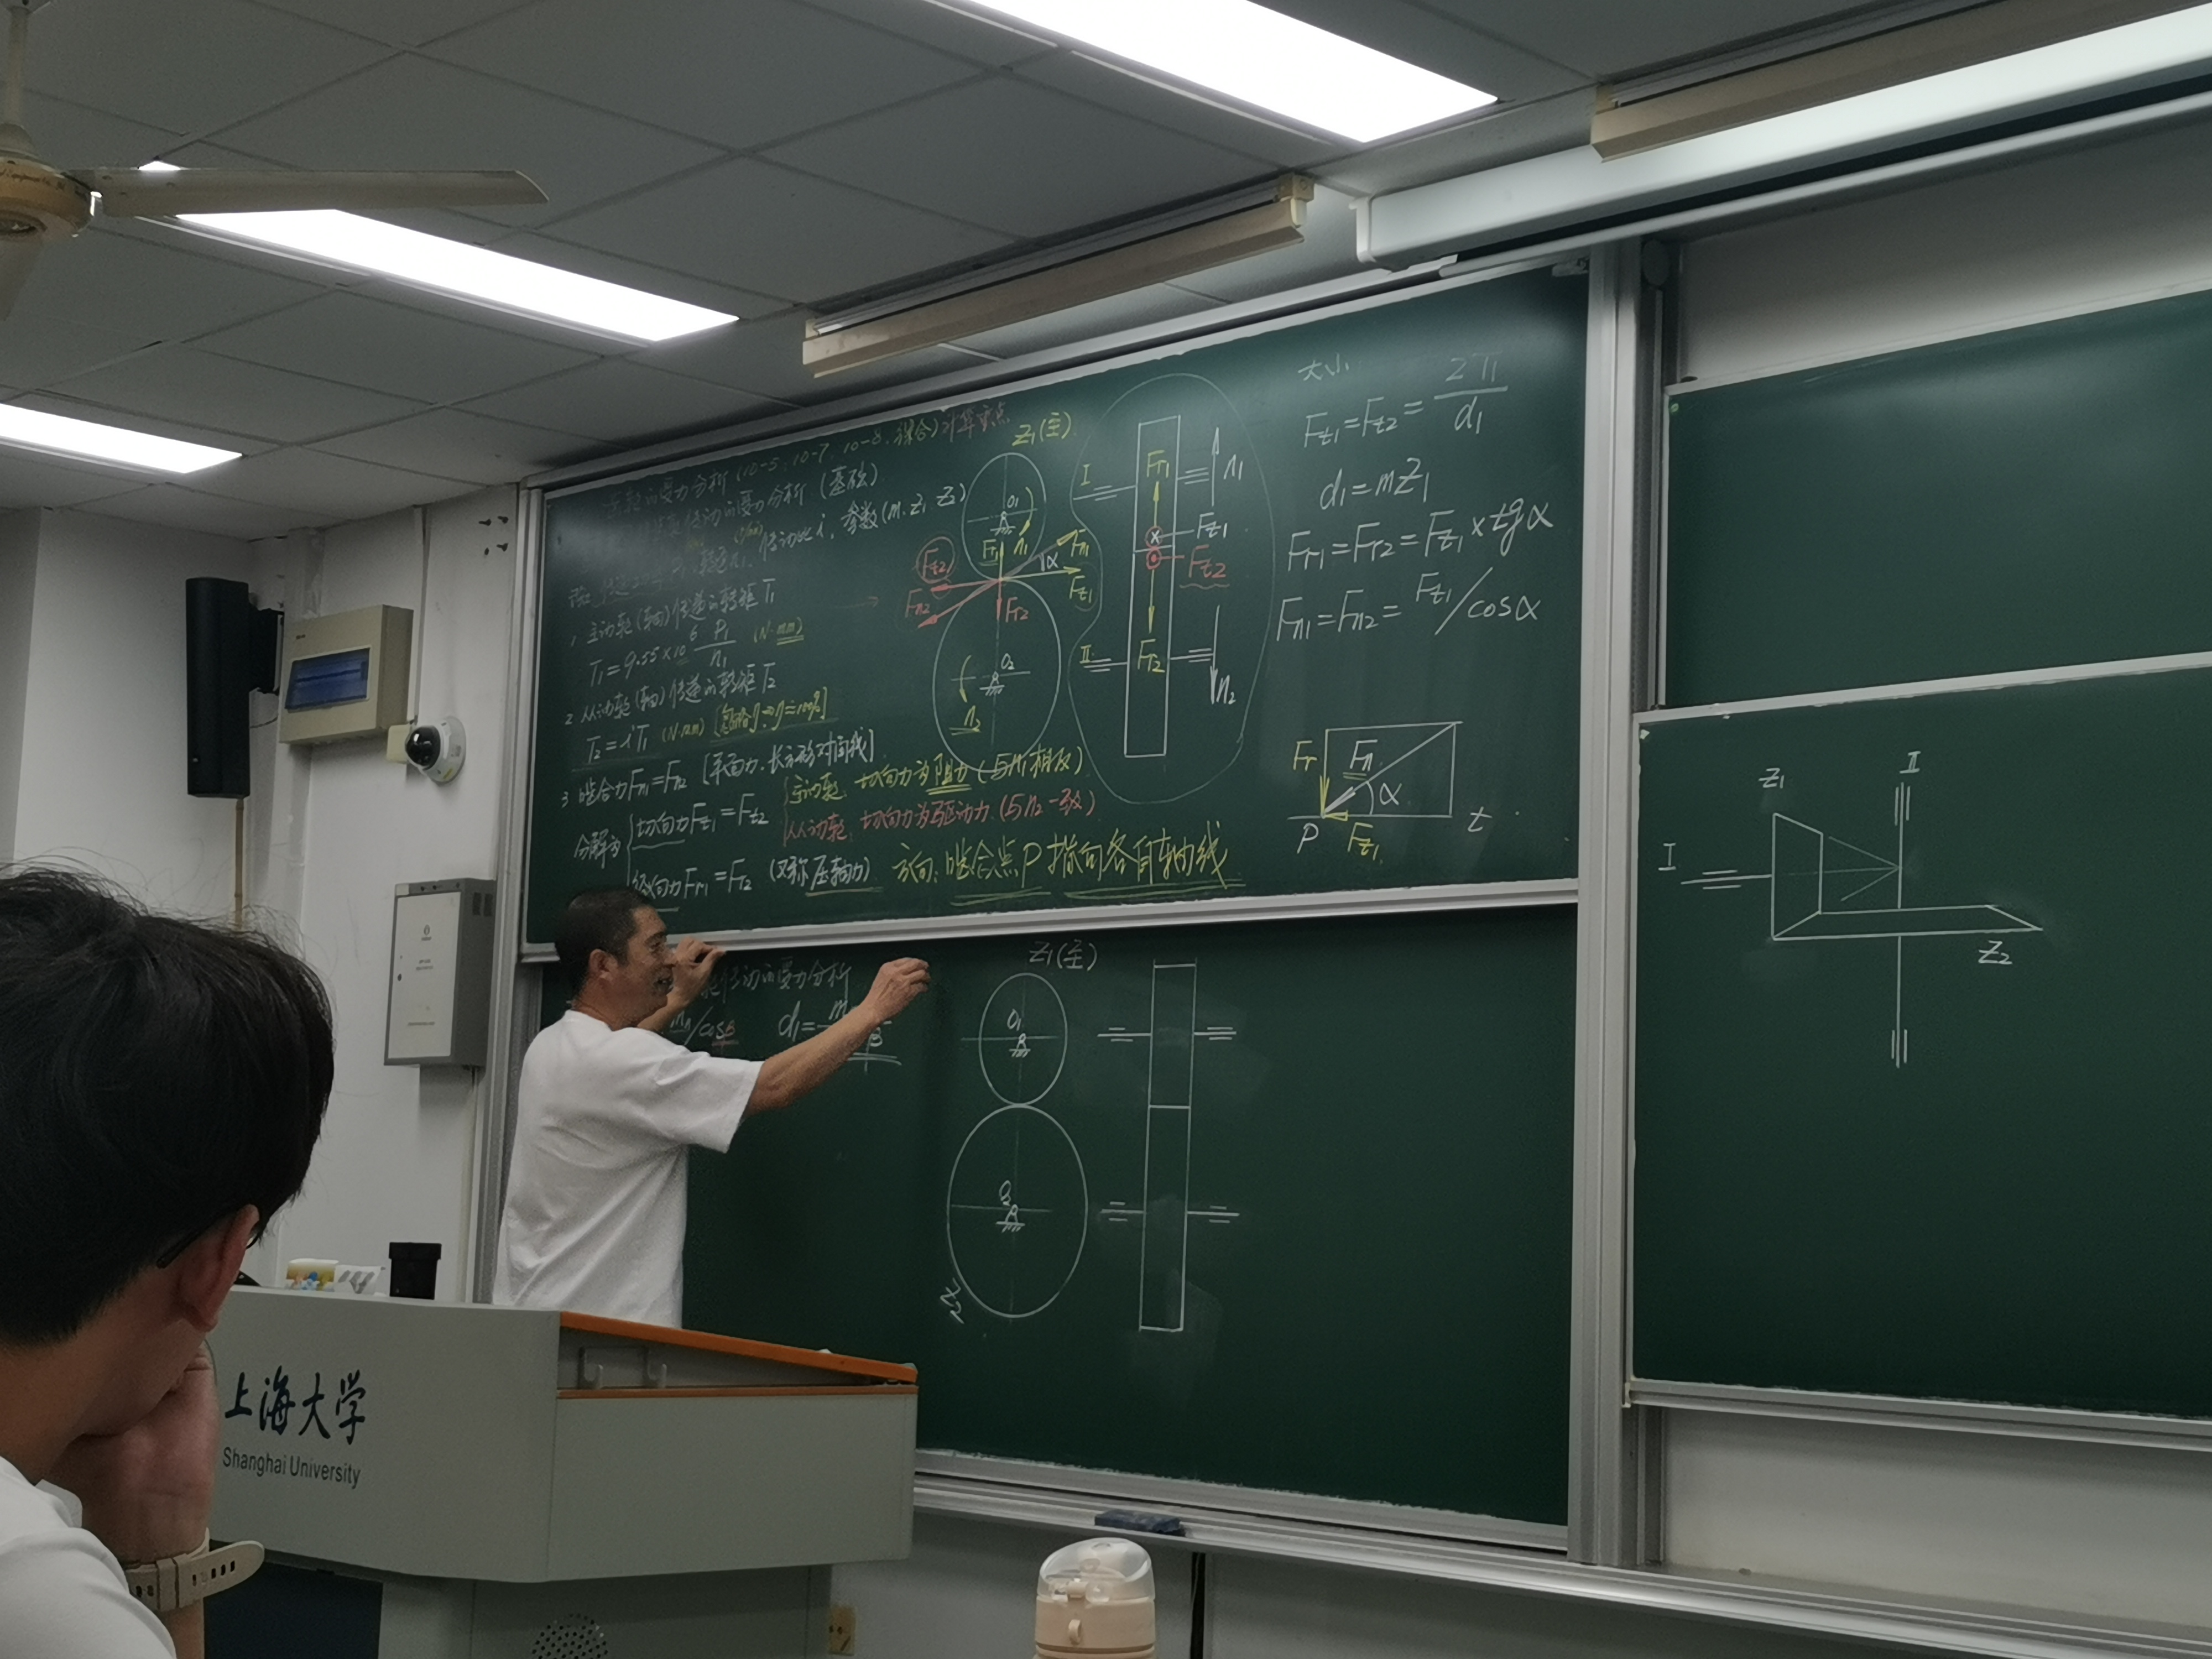 齿轮的受力分析 (10-5. 10-7. 10-8. 综合) 计算重点
传动的受力分析 (基础)
传动比 i, 参数 (m. Z₁ Z₂)
1, 主动轮(轴)传递的转矩 T₁
T₁=9.55×10⁶ P₁/n₁ (N·mm)
2 从动轮(轴)传递的转矩 T₂
T₂=iT₁ (N·mm) [忽略η→η=100%]
3 啮合力 Fn₁=Fn₂ [平面力、长方形对角线]
分解为
切向力 Ft₁=Ft₂
主动轮: 切向力为阻力 (与n₁相反)
从动轮: 切向力为驱动力 (与n₂一致)
径向力 Fr₁=Fr₂ (又称压轴力) 方向: 啮合点P指向各自轴线
Z₁(主)
O₁
n₁
Fr₁
Fn₁
α
Ft₁
Ft₂
Fn₂
Fr₂
O₂
n₂
I
Fr₁
n₁
Ft₁
Ft₂
II
Fr₂
n₂
大小
Ft₁=Ft₂= 2T₁/d₁
d₁=mZ₁
Fr₁=Fr₂=Ft₁×tgα
Fn₁=Fn₂= Ft₁/cosα
Fr
Fn
α
P
Ft₁
t
传动的受力分析
mn/cosβ
d₁=
Z₁(主)
O₁
O₂
Z₂
Z₁
II
I
Z₂
上海大学
Shanghai University